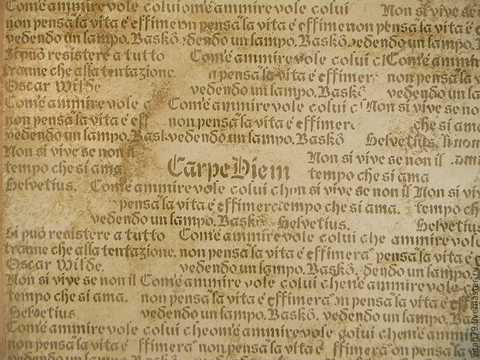 Com'e ammirevole colui om'e ammirevole colui Non si vive se n
non pensa la vita è effimera non pensa la vita è effimera tempo che si
vedendo un lampo. Baskō. dendo un lampo. Baskō vedendo un lampo.
Si può resistere a tutto Com'e ammirevole colui Com'e ammir
tranne che alla tentazione. a pensa la vita è effimer non pensa la v
Oscar Wilde vedendo un lampo. Bask vedendo un l
Com'e ammirevole c Com'e ammirevole colui c Non si vive se no
non pensa la vita è eff non pensa la vita è effimer che si ama
vedendo un lampo. Bask vedendo un lampo. Baskō Helvetius. non
Non si vive se non il Non si vive se non il
tempo che si ama Carpe Diem tempo che si ama
Helvetius. Com'e ammirevole colui che non si vive se non il Non si viv
pensa la vita è effimera tempo che si ama. tempo ch
vedendo un lampo. Baskō Helvetius. Helvetius
Si può resistere a tutto Com'e ammirevole colui che ammirevole colui
tranne che alla tentazione. non pensa la vita è effimera pensa la vita è
Oscar Wilde. vedendo un lampo. Baskō. dendo un lampo.
Non si vive se non il Com'e ammirevole colui che m'e ammirevole
tempo che si ama. non pensa la vita è effimera n pensa la vita è eff
Helvetius vedendo un lampo. Baskō. vedendo un lampo.
Com'e ammirevole colui che om'e ammirevole colui che m'e ammir
non pensa la vita è effimera non pensa la vita è effimera non pensa la